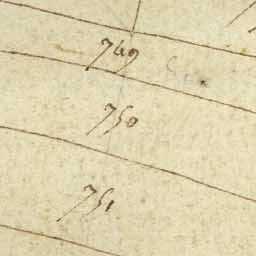 749
750
751